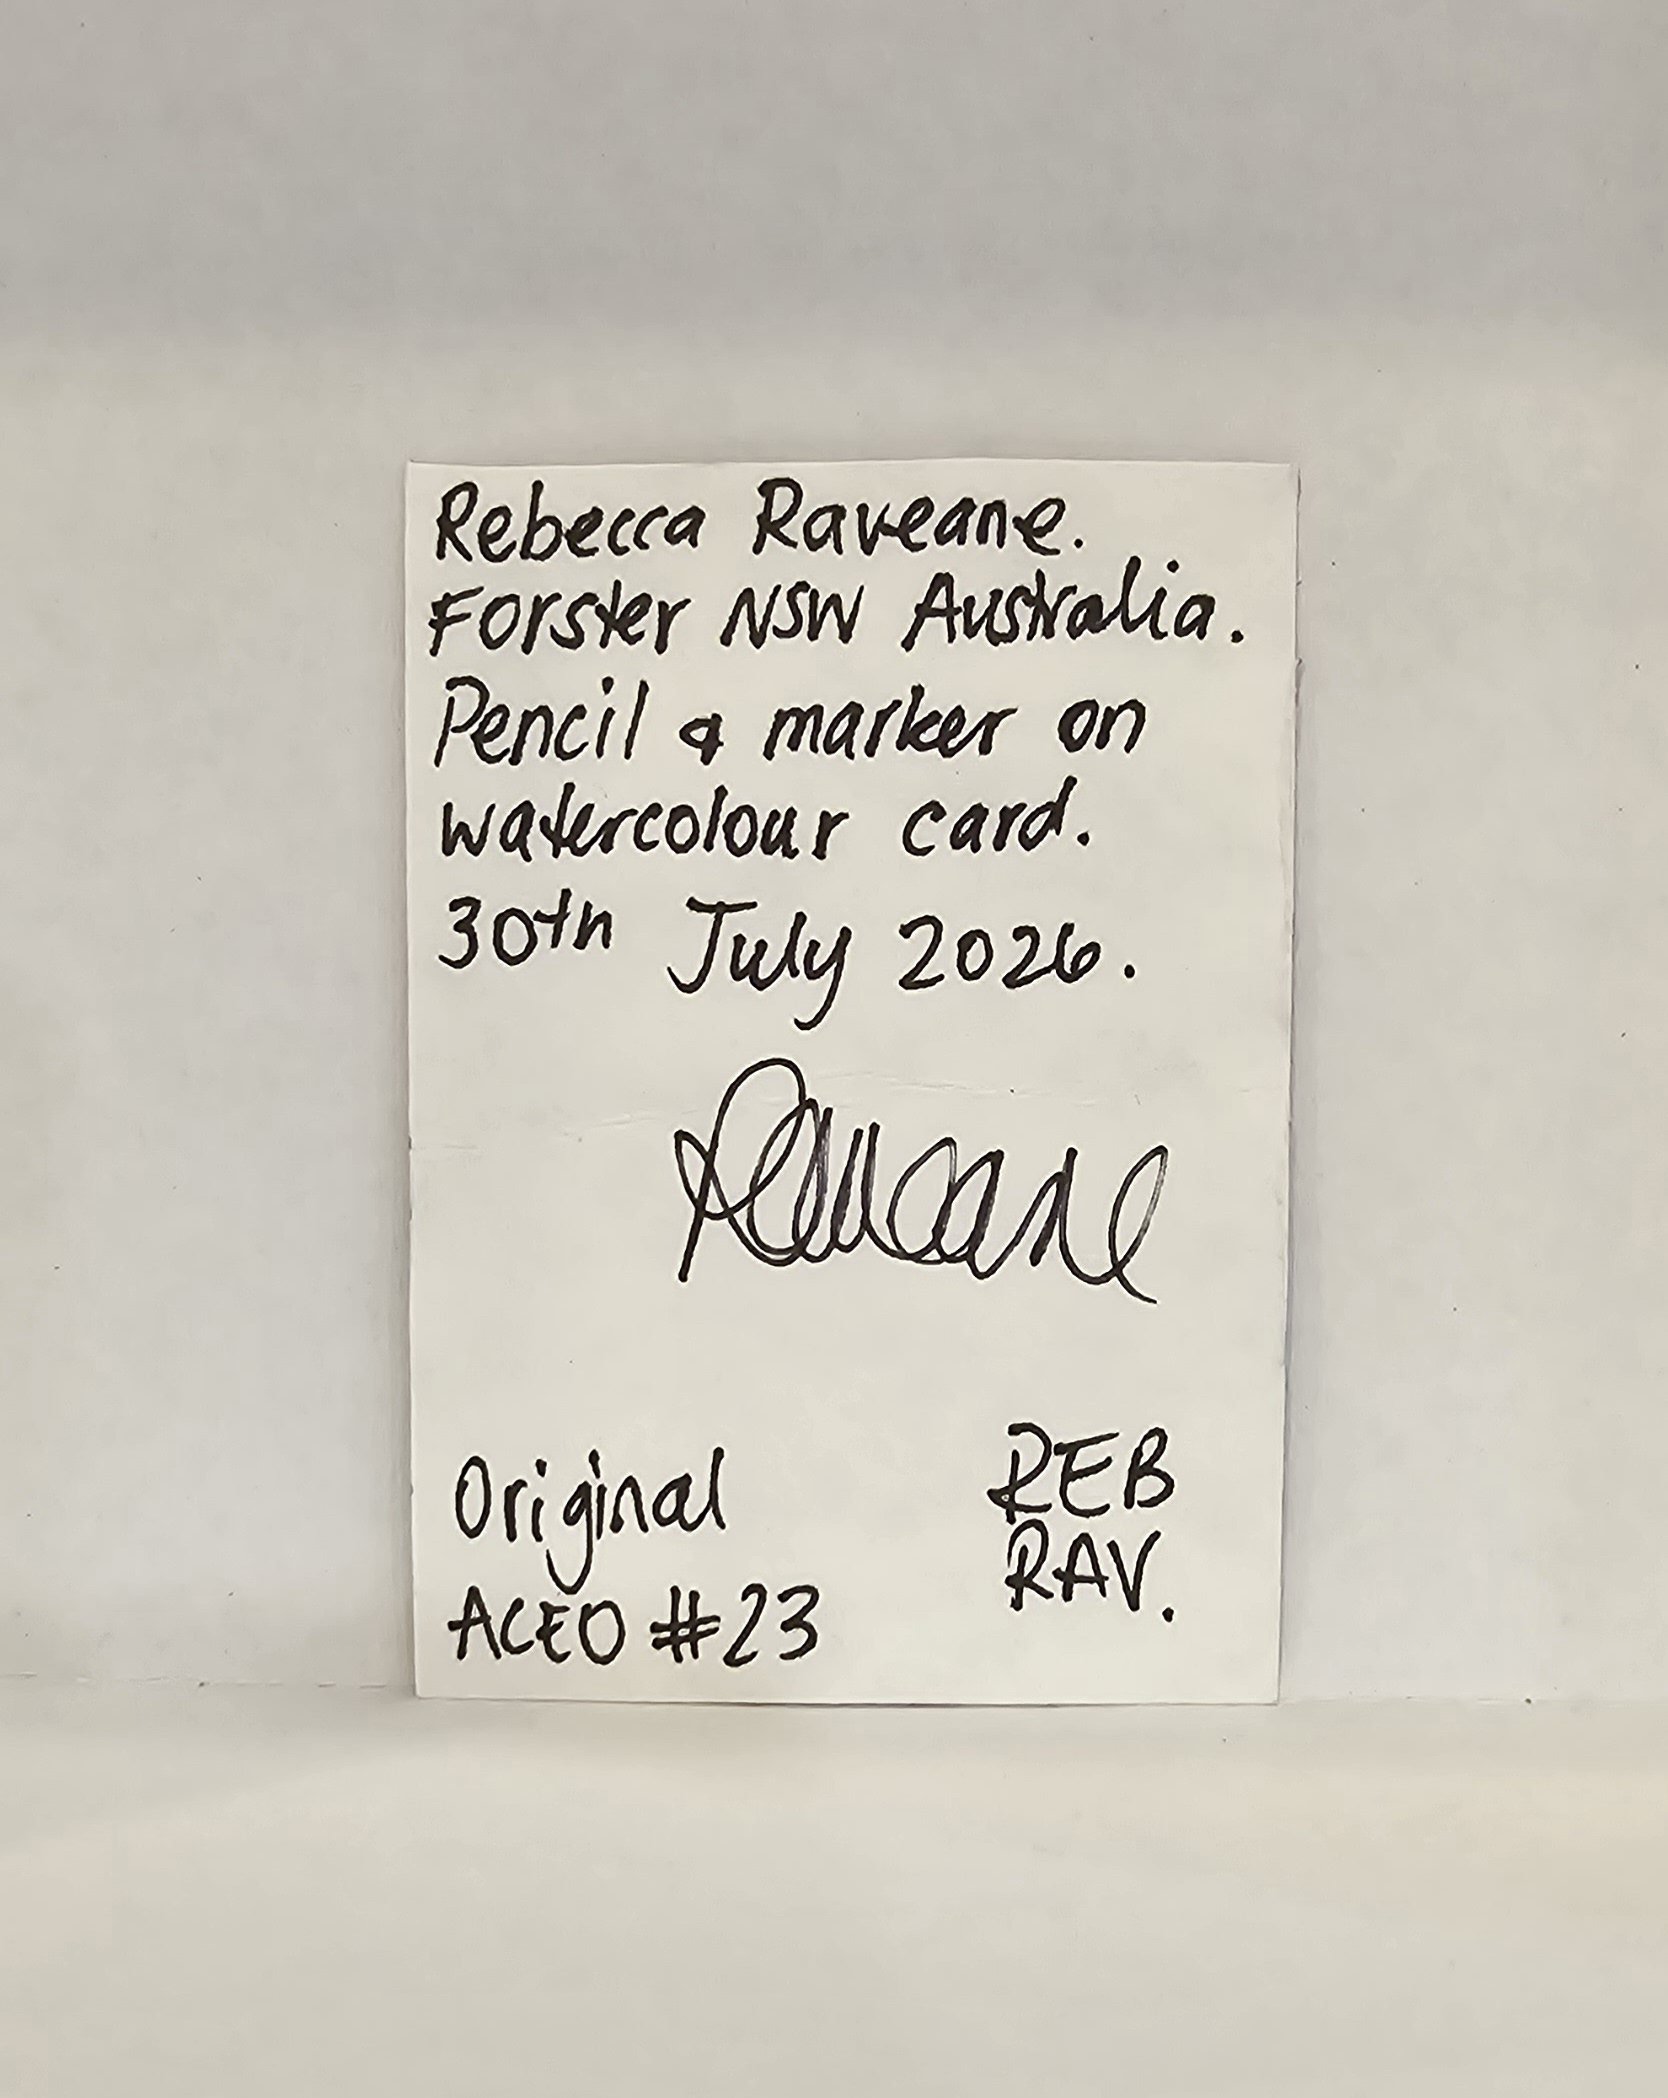 Rebecca Raveane.
Forster NSW Australia.
Pencil & marker on
watercolour card.
30th July 2026.
Raveane
Original
ACEO #23
REB
RAV.